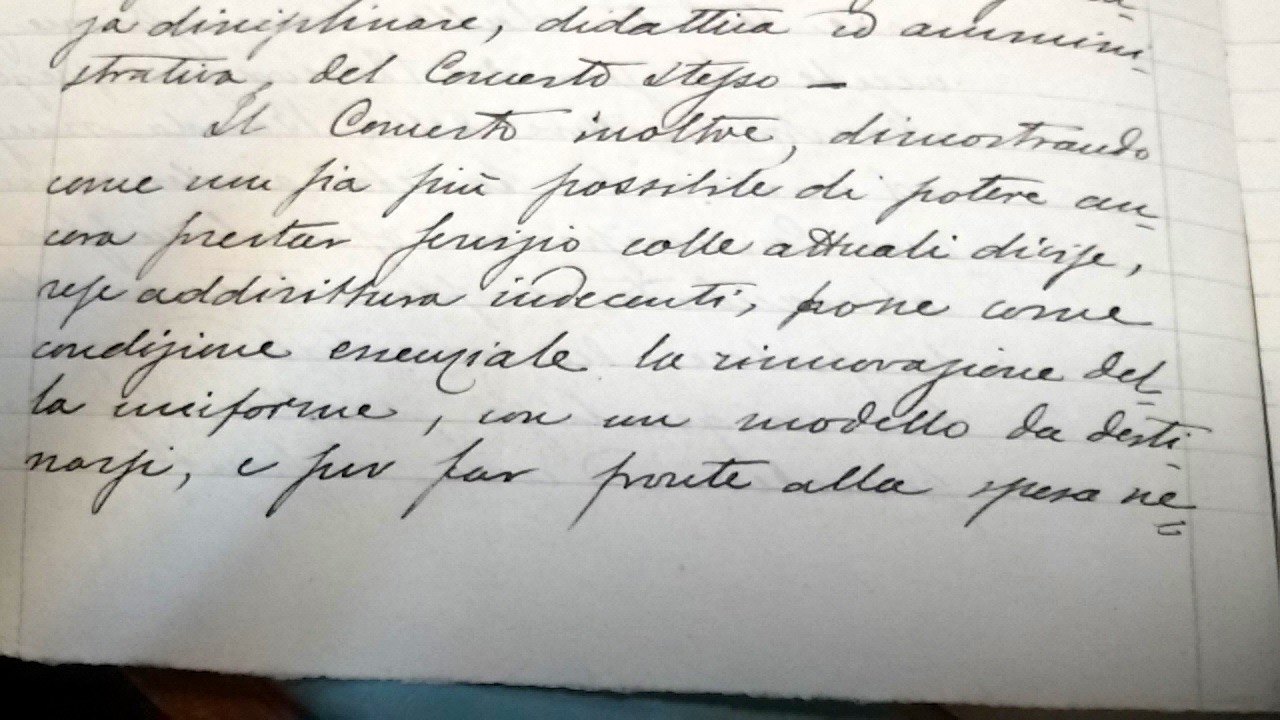 za disciplinare, didattica ed ammini-
strativa, del Concerto stesso —
Il Concerto inoltre, dimostrando
come non sia più possibile di potere an-
cora prestar servizio colle attuali divise,
rese addirittura indecenti, pone come
condizione essenziale la rinnovazione del-
la uniforme, con un modello da desti-
narsi, e per far fronte alla spesa ne=